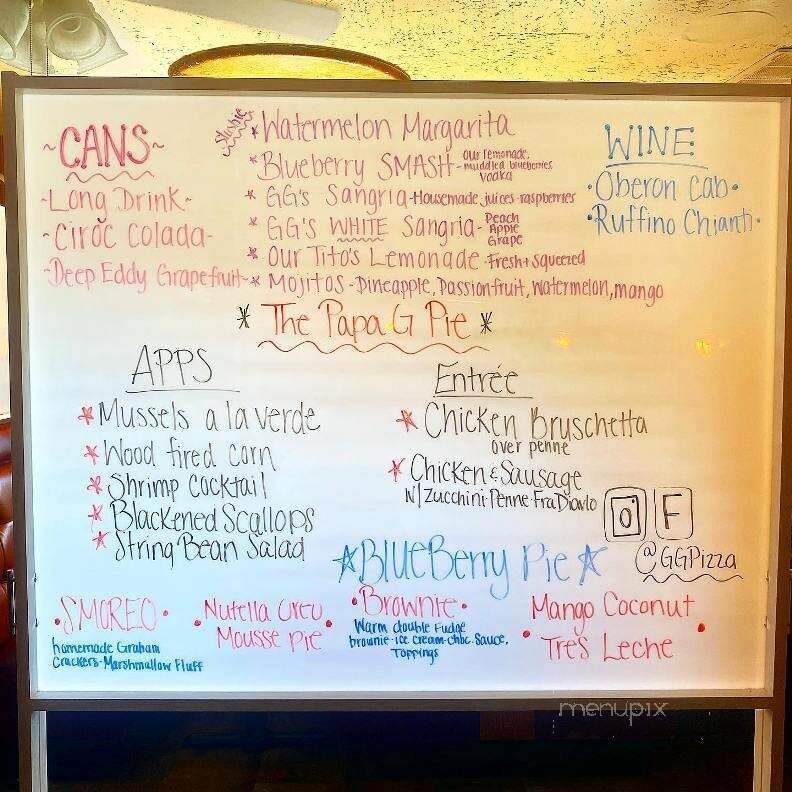 ~CANS~
~Long Drink~
~Ciroc Colada~
~Deep Eddy Grapefruit~
Slushie
*Watermelon Margarita
*Blueberry SMASH- our lemonade, muddled blueberries, vodka
* GG's Sangria-Housemade, juices-raspberries
* GG's WHITE Sangria- Peach Apple Grape
* Our Tito's Lemonade-Fresh+Squeezed
* Mojitos-Pineapple, Passionfruit, Watermelon, mango
WINE
•Oberon Cab•
•Ruffino Chianti•
* The Papa G Pie *
APPS
*Mussels a la verde
*Wood fired corn
*Shrimp Cocktail
*Blackened Scallops
*String Bean Salad
Entrée
*Chicken Bruschetta
over penne
*Chicken & Sausage
w/ Zucchini·Penne·Fra Diavlo
F
@GGPizza
*BlueBerry Pie*
•SMOREO•
homemade Graham
Crackers-Marshmallow Fluff
•Nutella Oreo
Mousse Pie•
•Brownie•
Warm double Fudge
brownie-ice cream-choc. Sauce,
Toppings
Mango Coconut
• Tres Leche •
menupix